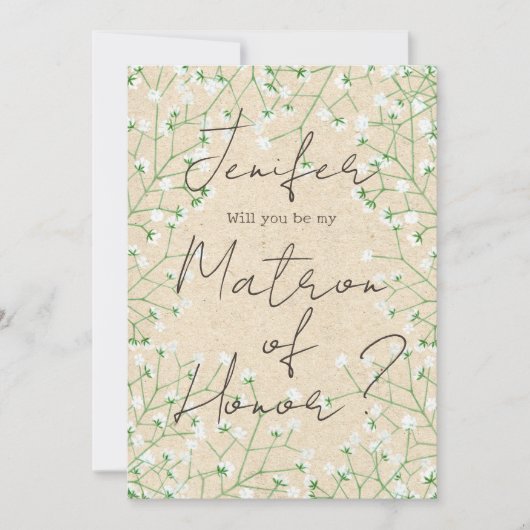 Jenifer
Will you be my
Matron
of
Honor?